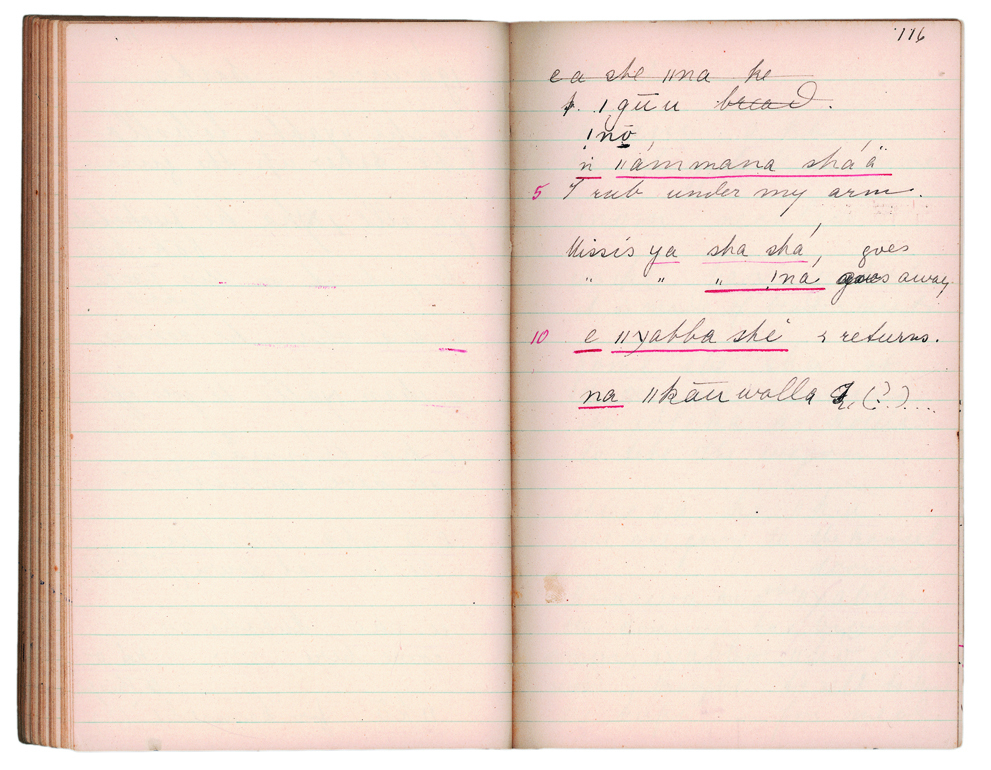 116
e a she ǁna ke
ǀ. ǀgūu bread.
ǃnō
n̍ ǁámmana shá ä
5 I rub under my arm.
Missis ya sha shá, goes
" " " ǃna goes away
10 e ǁyabba shé & returns.
na ǁkāu walla (?)...